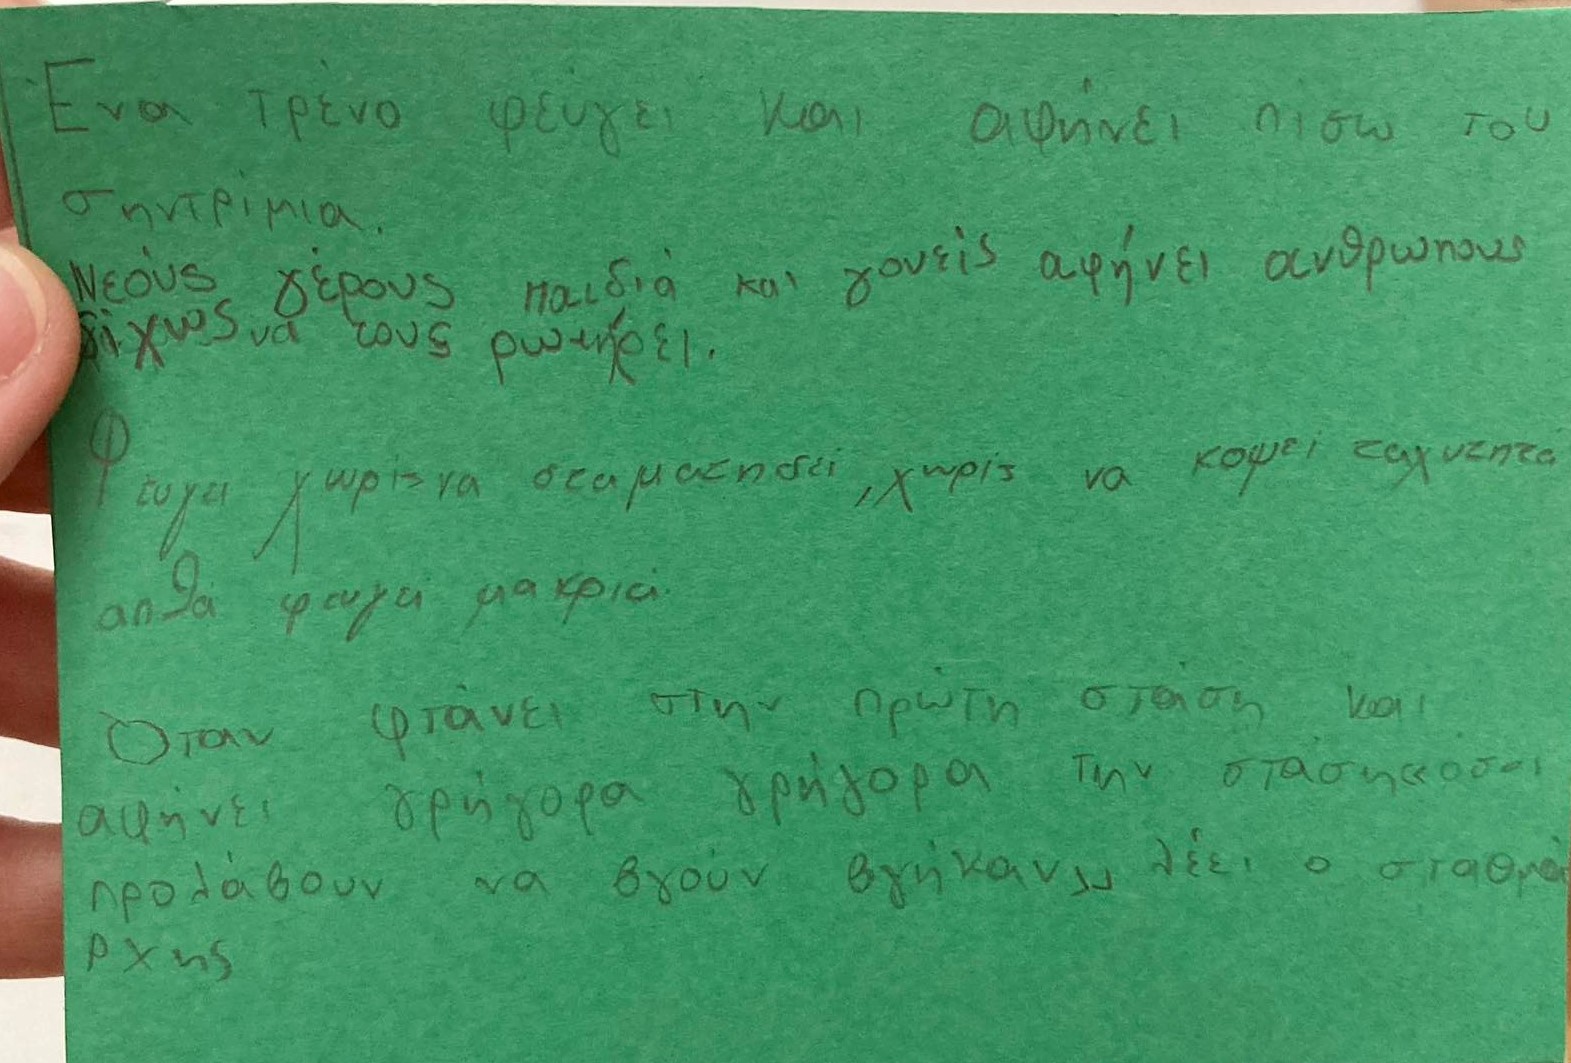 Ένα τρένο φεύγει και αφήνει πισω του
σηντρίμια.
Νεόυς γέρους παιδιά και γονείς αφήνει ανθρωπους
δίχως να τους ρωτήσει.
Φευγει χωρίς να σταματησει, χωρίς να κοψει ταχυτητα
απλά φευγει μακριά.
Όταν φτάνει στην πρώτη στάση και
αφήνει γρήγορα γρήγορα την στάση «οσοι
προλάβουν να βγούν βγήκαν» λέει ο σταθμά
ρχης